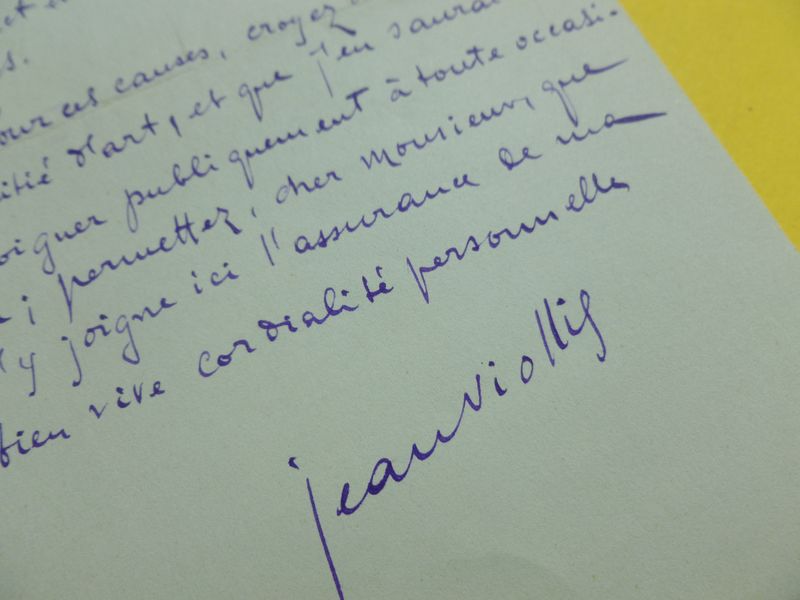 et
s.
our ces causes, croyez
itié d'art, et que j'en saurai
oigner publiquement à toute occasi-
; permettez, cher Monsieur, que
y joigne ici l'assurance de ma
bien vive cordialité personnelle
jean viollis